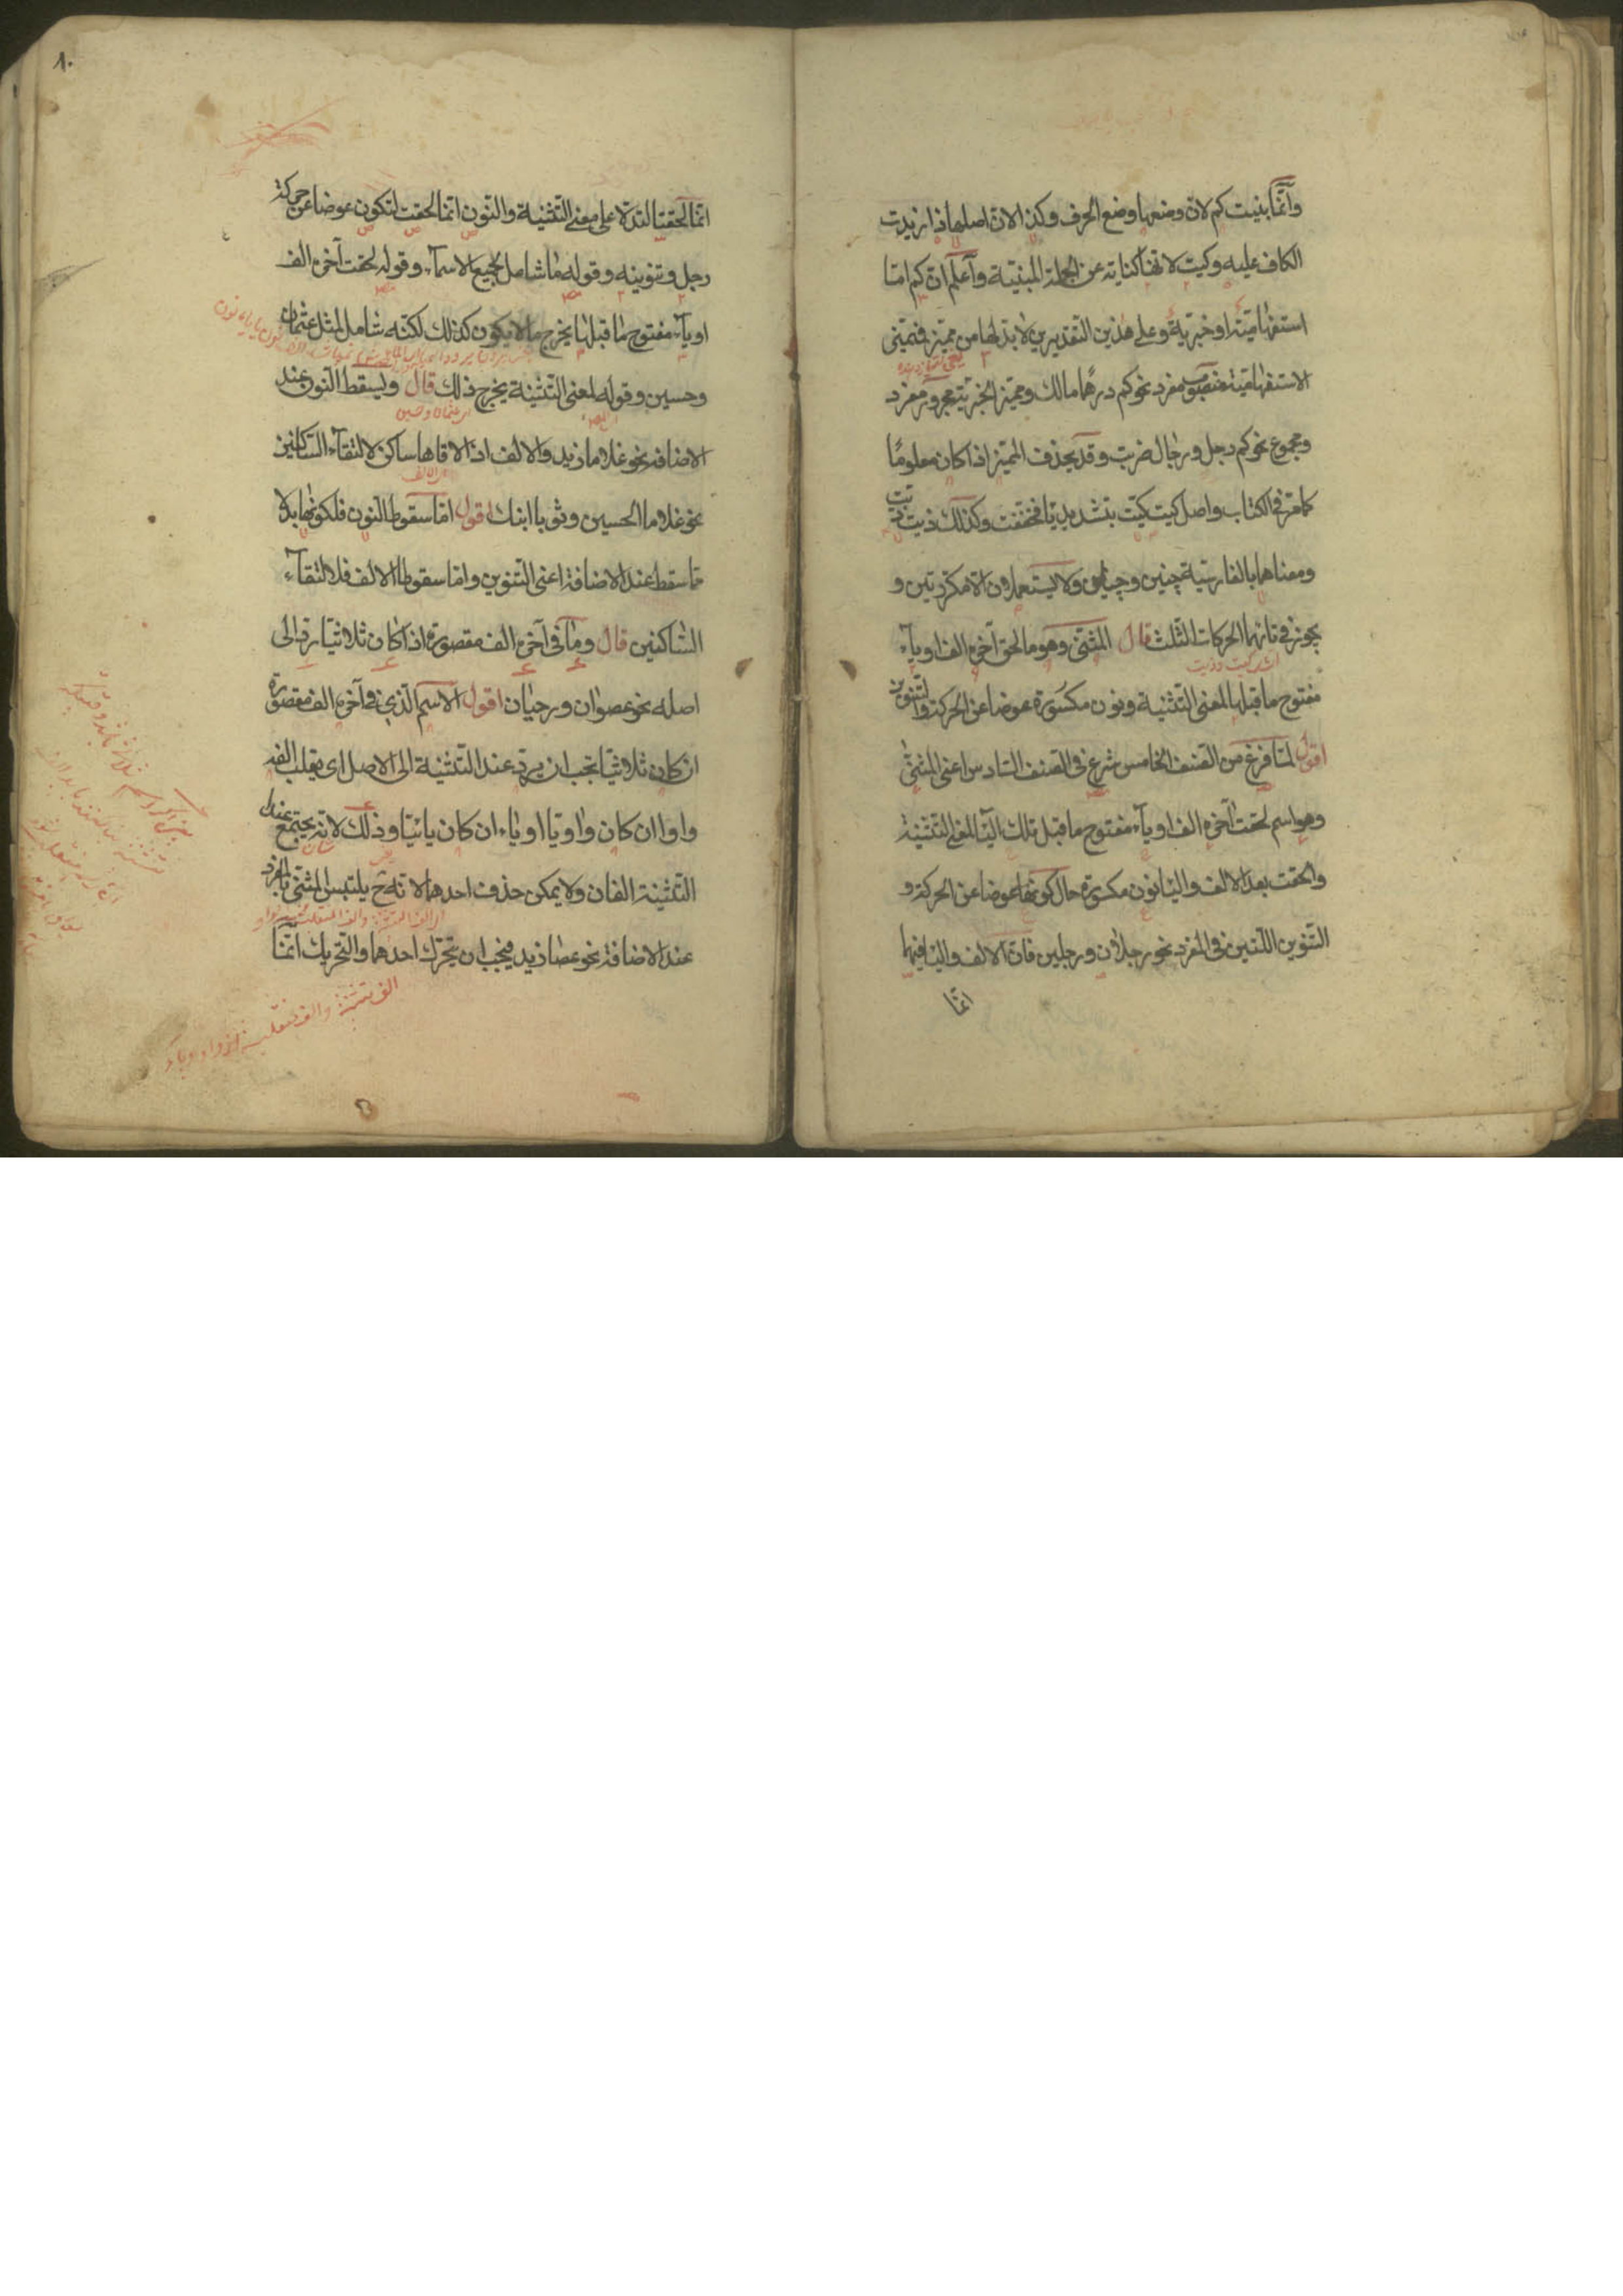 وانّما بنيت كم لانّ وضعها وضع الحرف وكذا لانّ اصلها ذا زيدت
الكاف عليه وكيت لانّها كناية عن الجملة المبنيّة واعلم انّ كم امّا
استفهاميّة او خبريّة وعلى هذين التّقديرين لا بدّ لها من مميّز فمميّز
الاستفهاميّة منصوب مفرد نحو كم درهما مالك ومميّز الخبريّة مجرور مفرد
ومجموع نحو كم رجل ورجال ضربت وقد يحذف المميّز اذا كان معلومًا
كما مرّ في الكتاب واصل كيت كيّت بتشديد يّا فخفّفت وكذلك ذيت
ومعناهما بالفارسيّة چنين وچنين ولا يستعملان الّا مكرّرتين و
يجوز في تائهما الحركات الثّلث قال المثنّى وهو ما لحق آخره الف او ياء
مفتوح ما قبلها لمعنى التّثنية ونون مكسورة عوضا عن الحركة والتّنوين
اقول لمّا فرغ من الصّنف الخامس شرع في الصّنف السّادس اعنى المثنّى
وهو اسم لحقت آخره الف او ياء مفتوح ما قبل تلك اليا لمعنى التّثنية
والحقت بعد الالف واليا نون مكسورة حال كونها عوضا عن الحركة و
التّنوين اللّتين في المفرد نحو رجلان ورجلين فانّ الالف واليا فيهما
انّما
١٠
انّما لحقتا لتدلّا على معنى التّثنية والنّون انّما لحقت لتكون عوضا عن حركة
رجل وتنوينه وقوله ما شامل لجميع الاسماء وقوله لحقت آخره الف
او ياء مفتوح ما قبلها يخرج ما لا يكون كذلك لكنّه شامل لمثل عثمان
وحسين وقوله لمعنى التّثنية يخرج ذلك قال ويسقط النّون عند
الاضافة نحو غلاما زيد والالف اذا لاقاها ساكن لالتقاء السّاكنين
نحو غلاما الحسين وثوبا ابنك اقول امّا سقوط النّون فلكونها بدلا
ممّا سقط عند الاضافة اعنى التّنوين وامّا سقوط الالف فلالتقاء
السّاكنين قال وما في آخره الف مقصورة اذا كان ثلاثيّا ردّ الى
اصله نحو عصوان ورحيان اقول الاسم الّذي في آخره الف مقصورة
ان كان ثلاثيّا يجب ان يردّ عند التّثنية الى الاصل اى يقلب الفه
واوا ان كان واويّا او ياء ان كان يائيّا وذلك لانّه يجتمع عند
التّثنية الفان ولا يمكن حذف احدهما لانّه ح يلتبس المثنّى بالمفرد
عند الاضافة نحو عصا زيد فيجب ان يتحرّك احدهما والتّحريك انّما